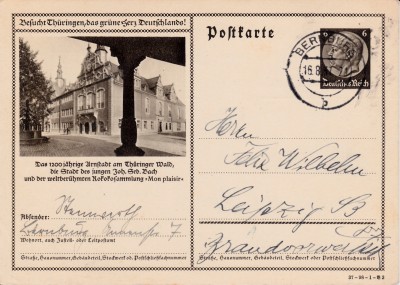 Besucht Thüringen, das grüne Herz Deutschlands!
Das 1200 jährige Arnstadt am Thüringer Wald,
die Stadt des jungen Joh. Seb. Bach
und der weltberühmten Rokokosammlung „Mon plaisir"
Absender:
Bernburg 7
Wohnort, auch Zustell- oder Leitpostamt
Straße, Hausnummer, Gebäudeteil, Stockwerk od. Postschließfachnummer
Postkarte
6 6
Deutsches Reich
BERNBURG
16.8
b
Herrn
Felix Wilhelm
Leipzig
Straße, Hausnummer, Gebäudeteil, Stockwerk oder Postschließfachnummer